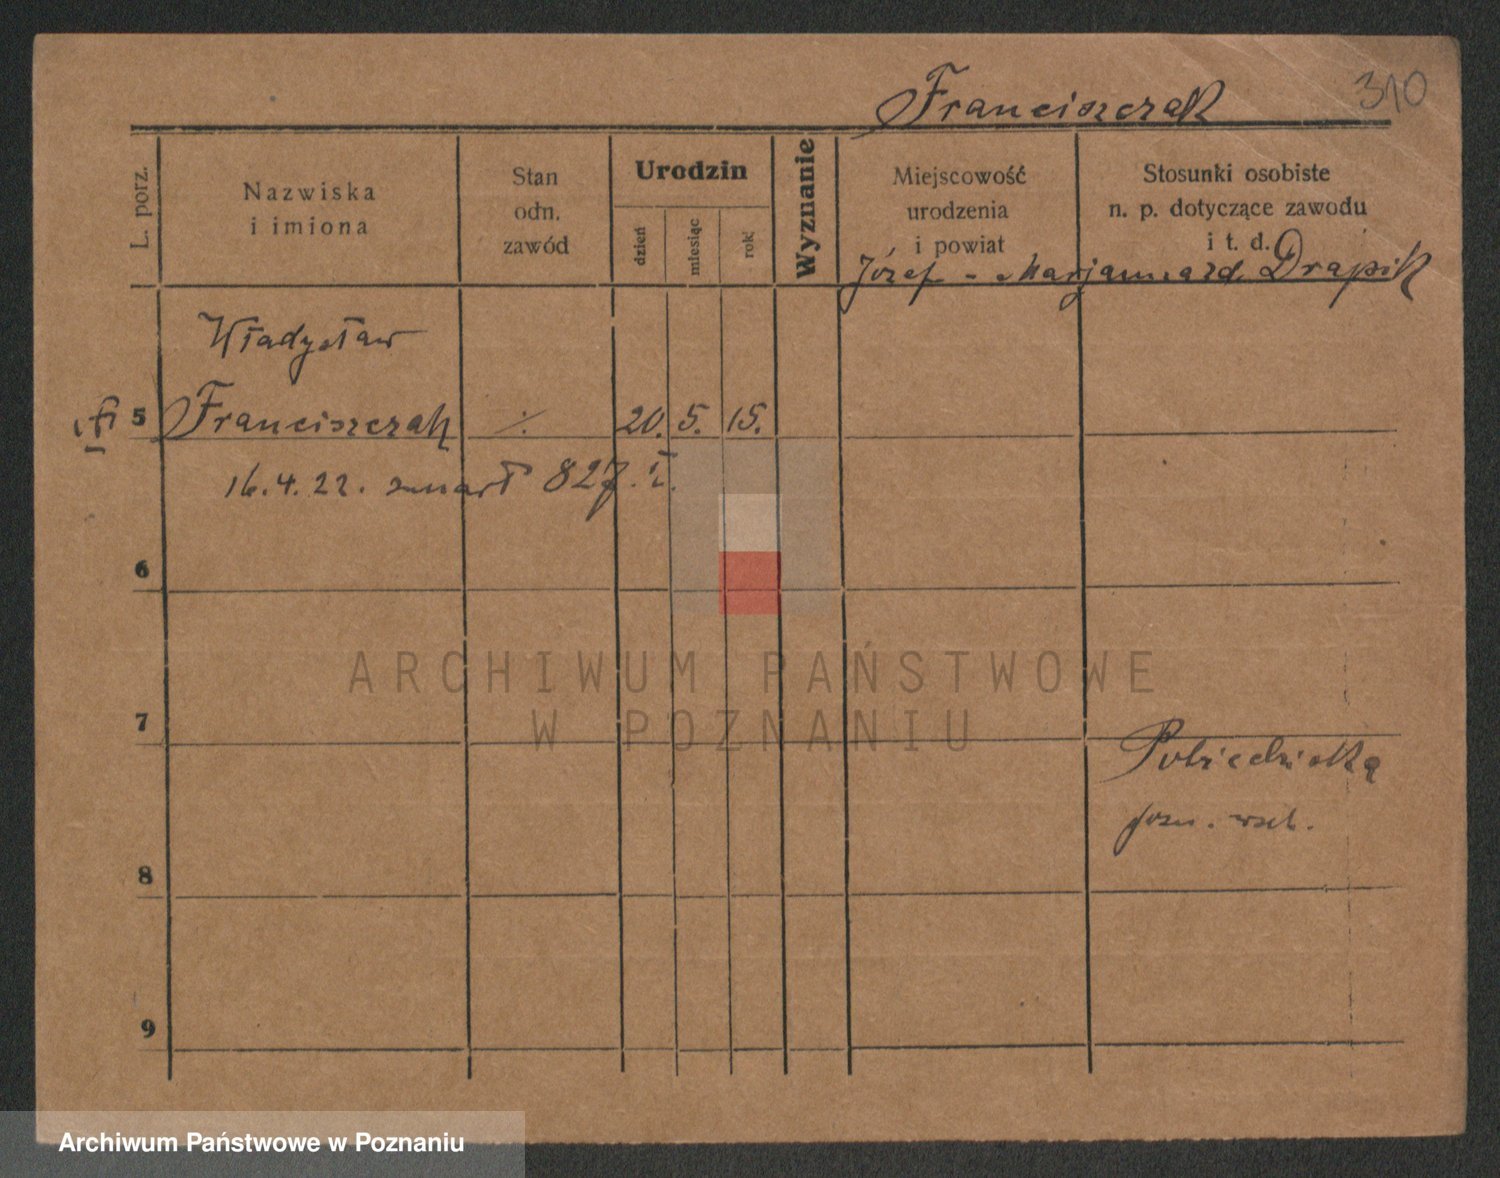 Franciszczak 310
L. porz.
Nazwiska
i imiona
Stan
odn.
zawód
Urodzin
dzień
miesiąc
rok
Wyznanie
Miejscowość
urodzenia
i powiat
Stosunki osobiste
n. p. dotyczące zawodu
i t. d.
Józef - Marjanna zd. Drapik
Władysław
5 Franciszczak ·/. 20. 5. 15.
16.4.22. zmarł 827.
6
7
8
9
ARCHIWUM PAŃSTWOWE
W POZNANIU
Archiwum Państwowe w Poznaniu